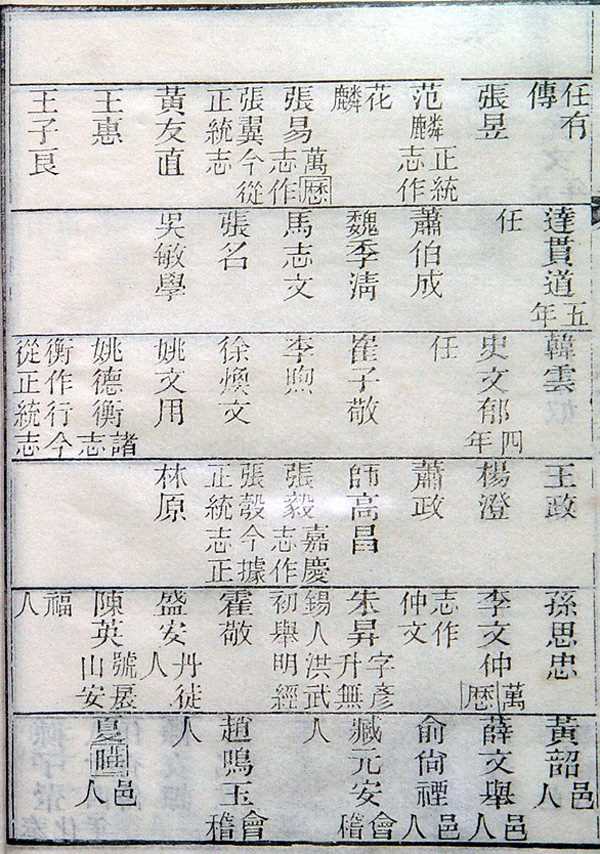 任有傳
張昱
范麟正統志作
花麟
張易萬曆志作
張翼今從正統志
黃友直
王惠
王子良
達貫道五年
任
蕭伯成
魏季清
馬志文
張名
吳敏學
韓雲
史文郁四年
任
崔子敬
李煦
徐煥文
姚文用
姚德衡諸志
衡作行今從正統志
王政
楊澄
蕭政
師高昌
張毅嘉慶志作
張嗀今據正統志正
林原
孫思忠
李文仲萬曆
志作仲文
朱昇字彥升無
錫人洪武初舉明經
霍敬
盛安丹徒人
陳英號展山安
福人
黃韶邑人
薛文舉邑人
俞尙禋邑人
臧元安會稽
人
趙鳴玉會稽
人
夏邑人